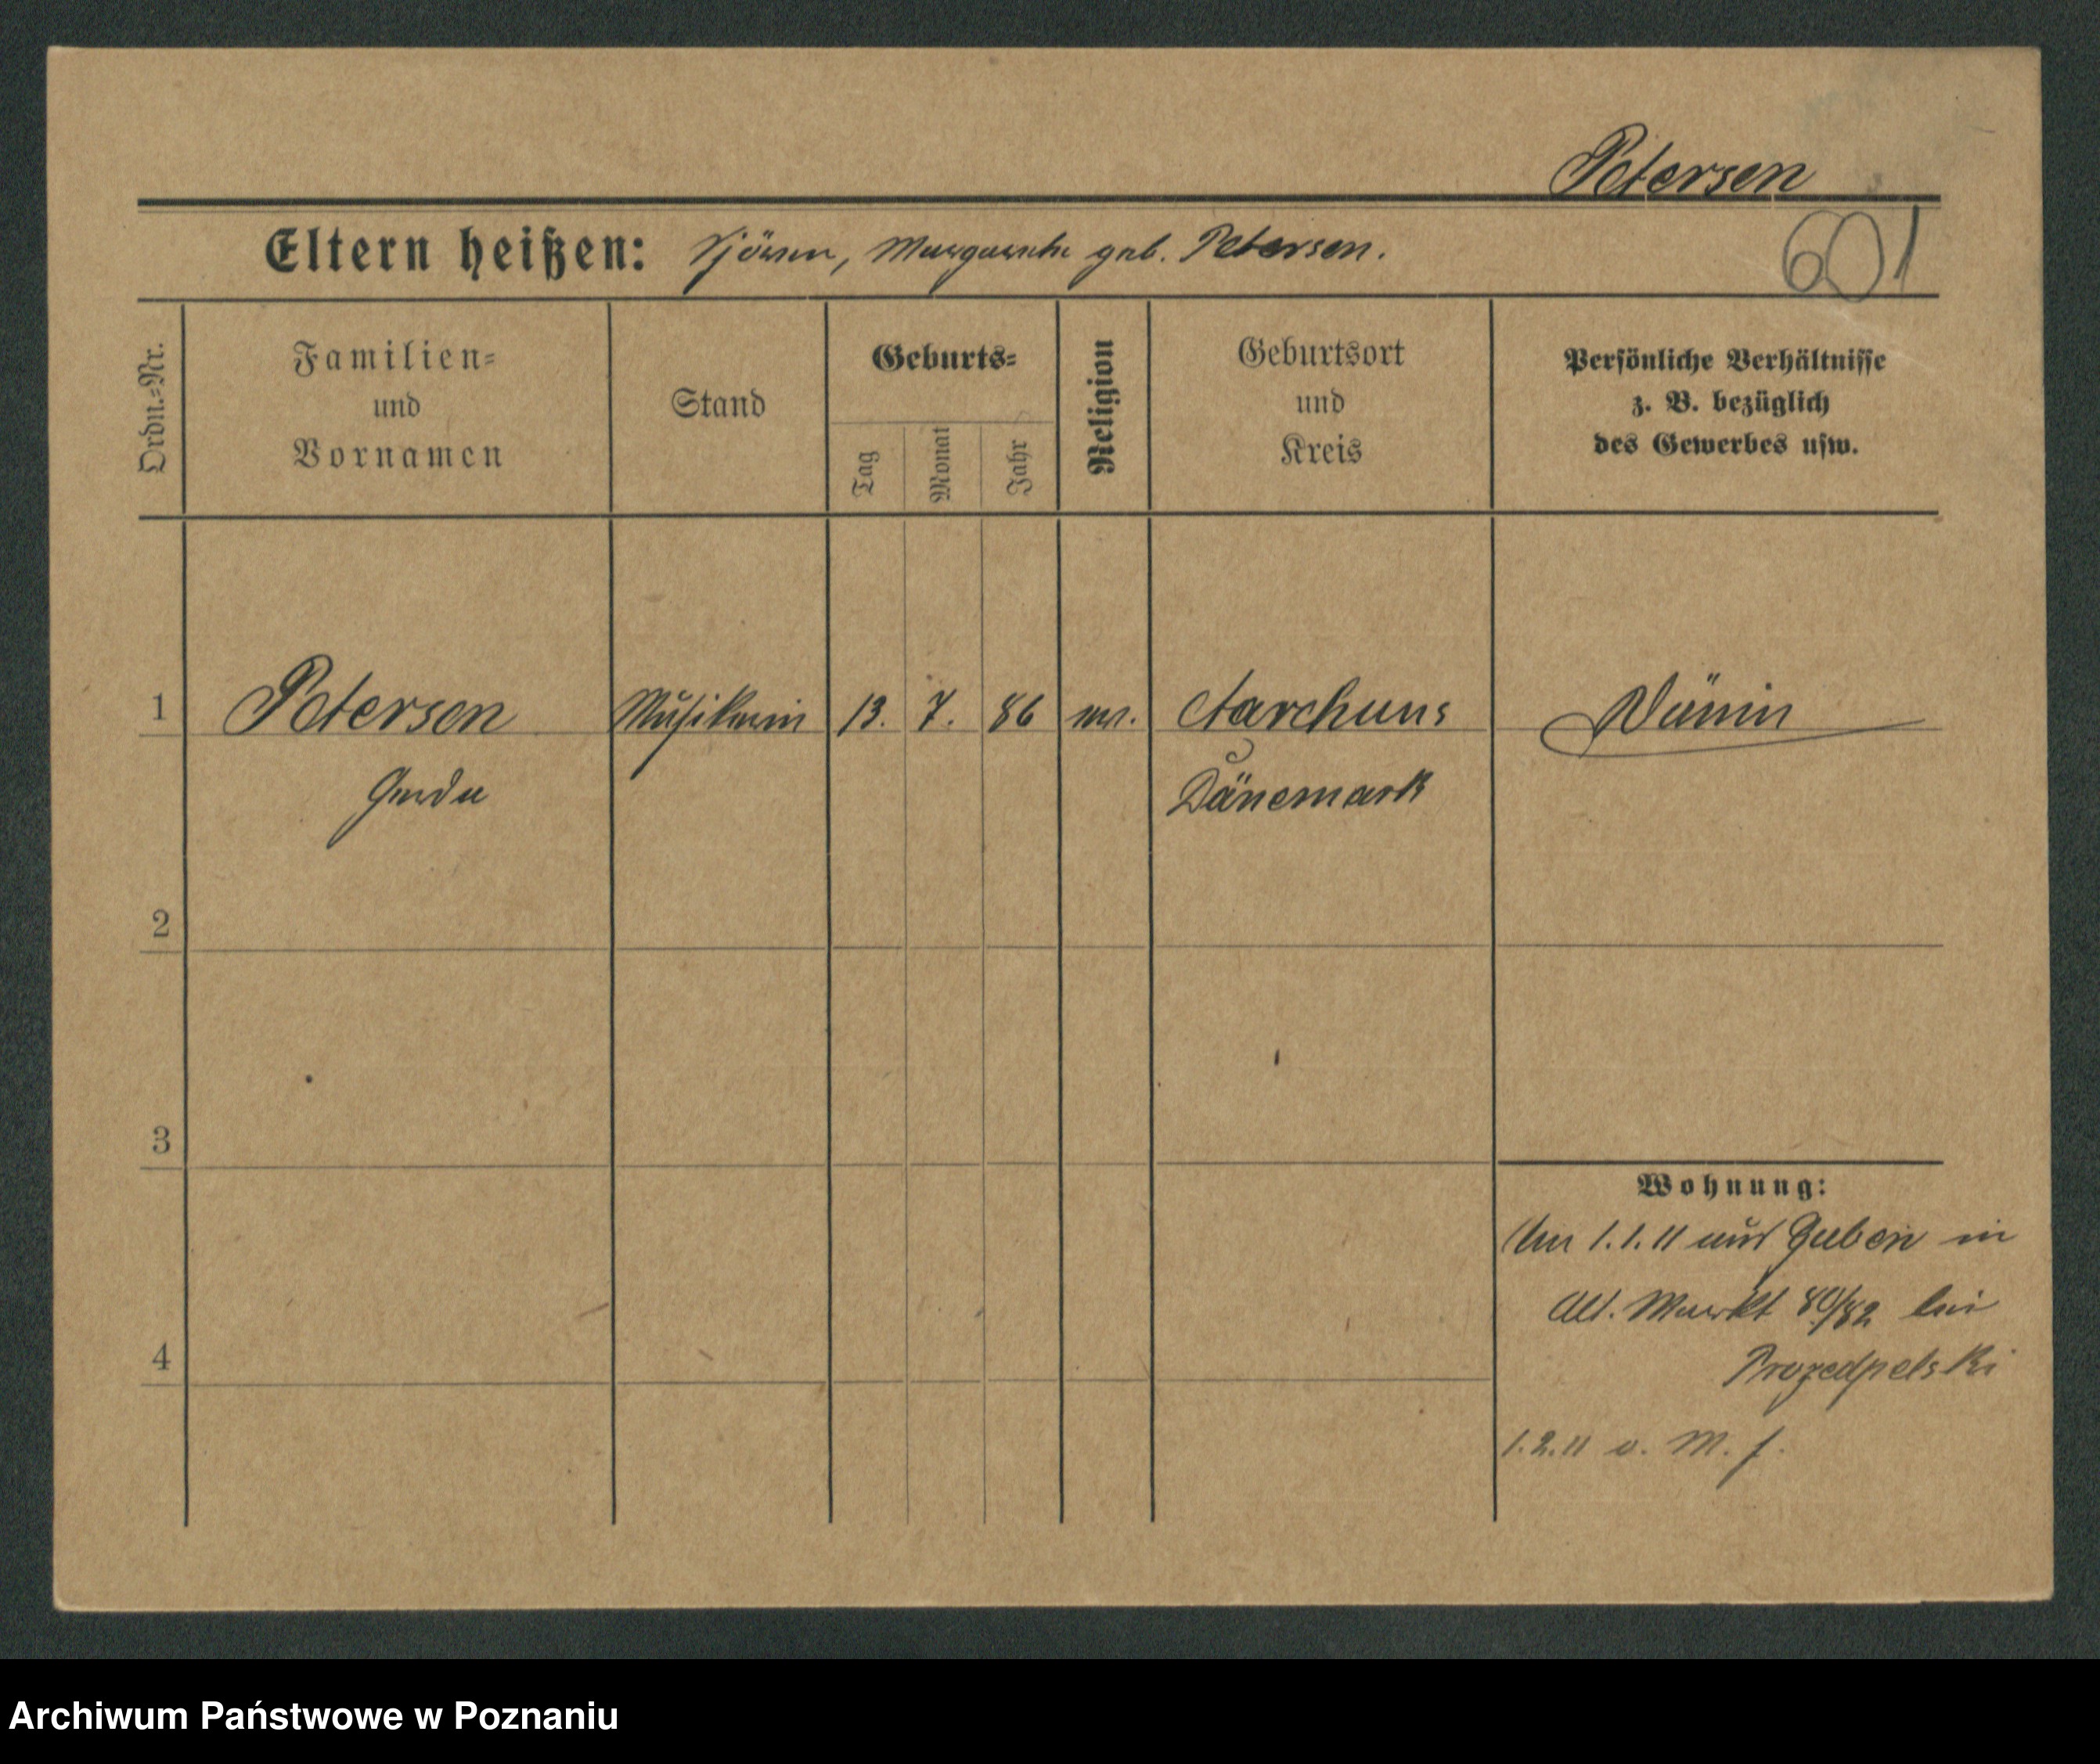 Petersen
Eltern heißen: Margarethe geb. Petersen.
601
Ordn.=Nr.
Familien=
und
Vornamen
Stand
Geburts=
Tag
Monat
Jahr
Religion
Geburtsort
und
Kreis
Persönliche Verhältnisse
z. B. bezüglich
des Gewerbes usw.
1 Petersen Musikerin 13. 7. 86 ev. Aarhuus Dänin
Gerda Dänemark
2
3
Wohnung:
1.1.11 aus Guben in
Alt. Markt 80/82 bei
4
1.2.11 v. M. f.
Archiwum Państwowe w Poznaniu